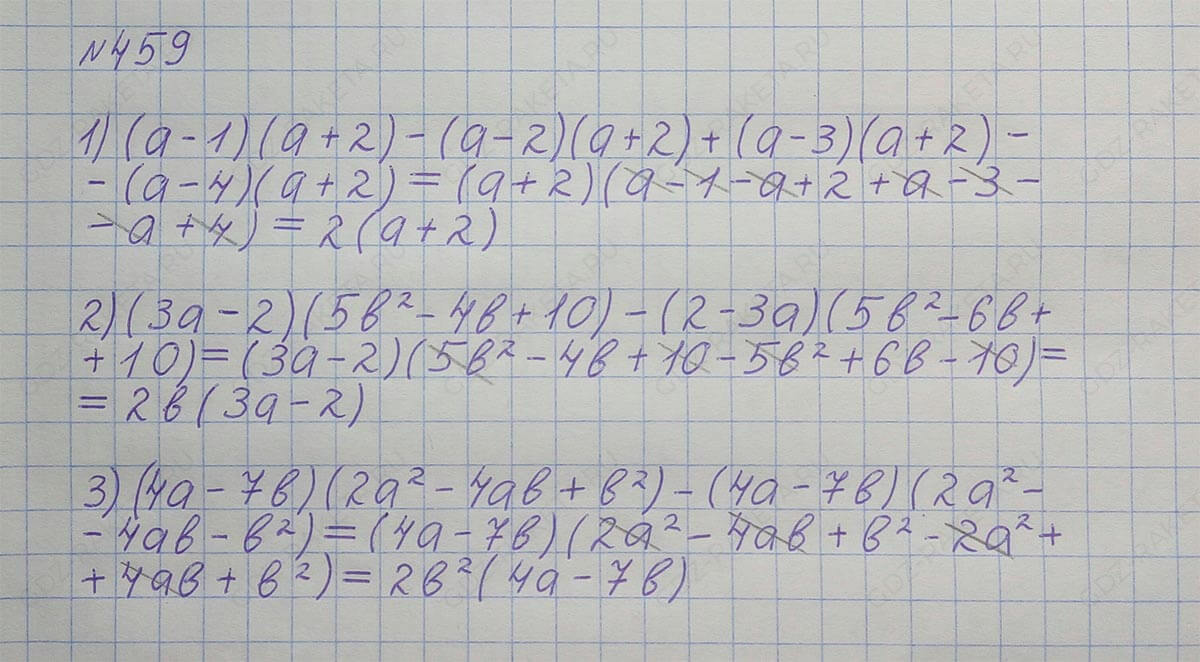 №459
1) (a-1)(a+2)-(a-2)(a+2)+(a-3)(a+2)-
-(a-4)(a+2)=(a+2)(a-1-a+2+a-3-
-a+4)=2(a+2)
2) (3a-2)(5в²-4в+10)-(2-3a)(5в²-6в+
+10)=(3a-2)(5в²-4в+10-5в²+6в-10)=
=2в(3a-2)
3) (4a-7в)(2a²-4aв+в²)-(4a-7в)(2a²-
-4aв-в²)=(4a-7в)(2a²-4aв+в²-2a²+
+4aв+в²)=2в²(4a-7в)